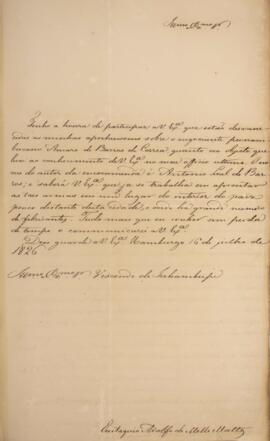 Illmo. e Exmo. Snr.
Tenho a honra de participar a V. Exª. que estão desvane-
cidas as minhas apprehensoens sobre o negociante pernam-
bucano Amaro de Barros de Correa quanto ao objeto que
leva ao conhecimento de V. Exª. no meu officio ultimo. O no-
me do autor da encommenda é Antonio Leal de Bar-
ros; e saberá V. Exª. que ja se trabalha em apromtar
as taes armas em um lugar do interior do paiz
pouco distante desta cidade, e onde há grande numero
de fabricantes. Tudo mais que eu souber sem perda
de tempo o communicarei a V. Exª.
Deos guarde a V. Exª. Hamburgo 16 de julho de
1826
Visconde de Inhambupe
Eustaquio Adolfo de Mello Mattos